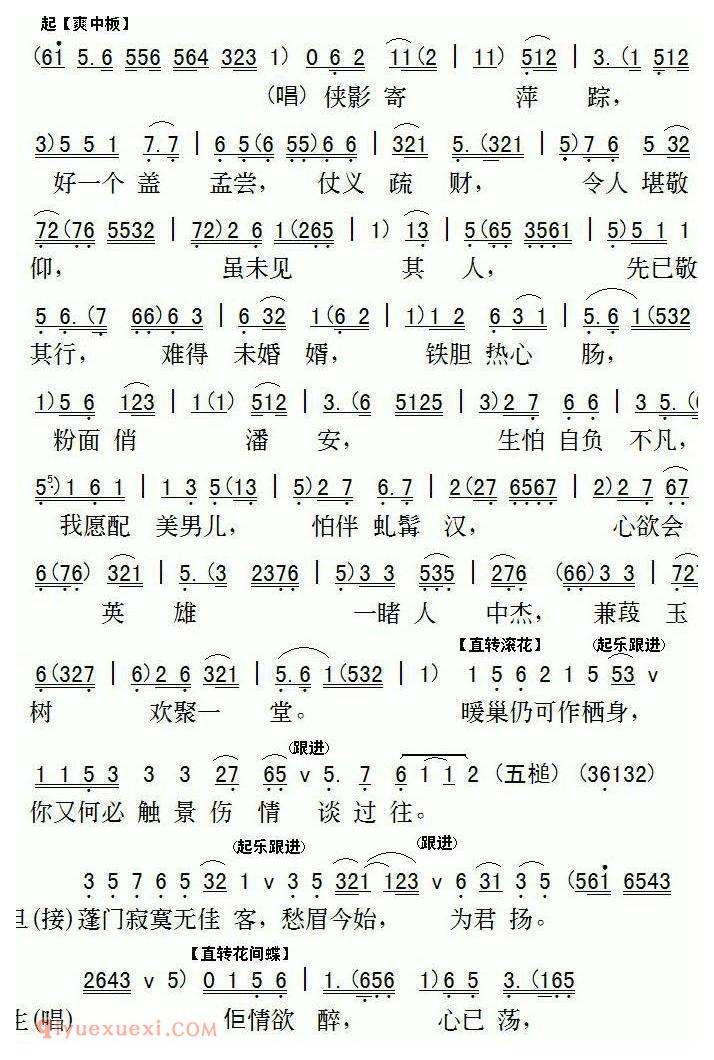 起【爽中板】
(6i 5.6 556 564 323 1) 0 6 2 11(2 | 11) 512 | 3.(1 512
(唱) 侠影 寄 萍 踪,
3)5 5 1 7.7 | 6 5(6 55)6 6 | 321 5.(321 | 5)7 6 5 32
好一个 盖 孟尝, 仗义 疏 财, 令人 堪敬
72(76 5532 | 72)2 6 1(265 | 1) 13 | 5(65 3561 | 5)5 1 1
仰, 虽未见 其 人, 先已敬
5 6.(7 66)6 3 | 6 32 1(6 2 | 1)1 2 6 3 1 | 5.6 1(532
其行, 难得 未婚 婿, 铁胆 热心 肠,
1)5 6 123 | 1(1) 512 | 3.(6 5125 | 3)2 7 6 6 | 3 5.(6
粉面 俏 潘 安, 生怕 自负 不凡,
5)1 6 1 | 1 3 5(13 | 5)2 7 6.7 | 2(27 6567 | 2)2 7 67
我愿配 美男儿, 怕伴 虬髯 汉, 心欲会
6(76) 321 | 5.(3 2376 | 5)3 3 535 | 276 (66)3 3 | 727
英 雄 一睹 人 中杰, 兼葭 玉
【直转滚花】 (起乐跟进)
6(327 | 6)2 6 321 | 5.6 1(532 | 1) 1 5 6 2 1 5 53 v
树 欢聚一 堂。 暖巢仍可作栖身,
(跟进)
1 1 5 3 3 3 27 65 v 5. 7 6 1 1 2 (五槌) (36132)
你又何必 触 景 伤 情 谈 过 往。
(起乐跟进) (跟进)
3 5 7 6 5 32 1 v 3 5 321 123 v 6 31 3 5 (561 6543
旦(接) 蓬门寂寞无佳 客, 愁眉今始, 为君 扬。
【直转花间蝶】
2643 v 5) 0 1 5 6 | 1.(656 1)6 5 3.(165
生(唱) 佢情欲 醉, 心已 荡,
Qiyuexuexi.com